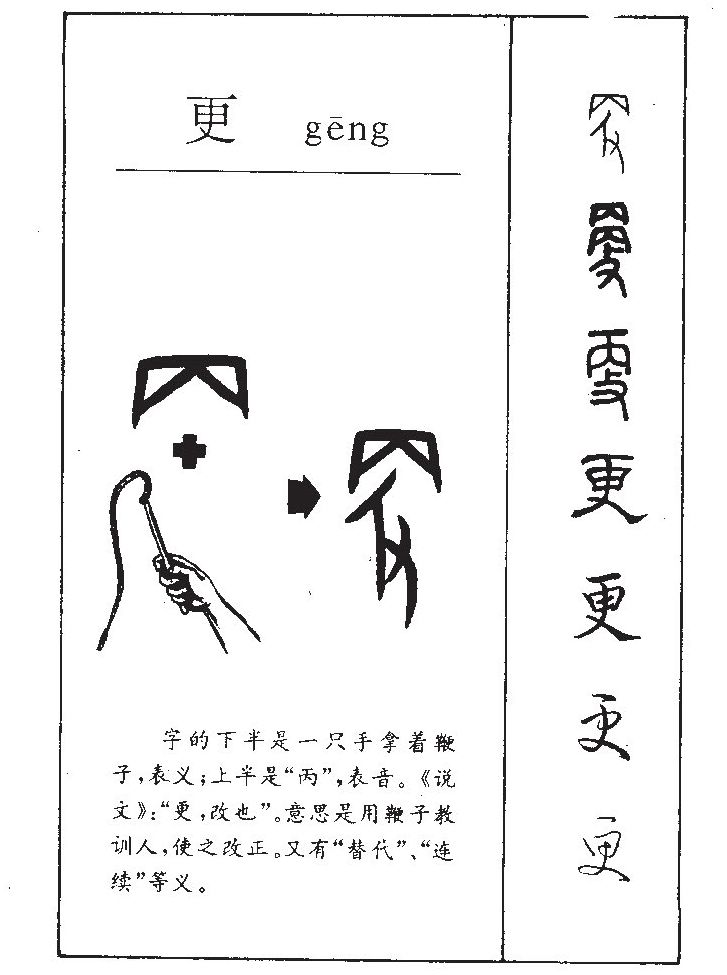 更 gēng
字的下半是一只手拿着鞭
子，表义；上半是“丙”，表音。《说
文》：“更，改也”。意思是用鞭子教
训人，使之改正。又有“替代”、“连
续”等义。
更
更
更
更